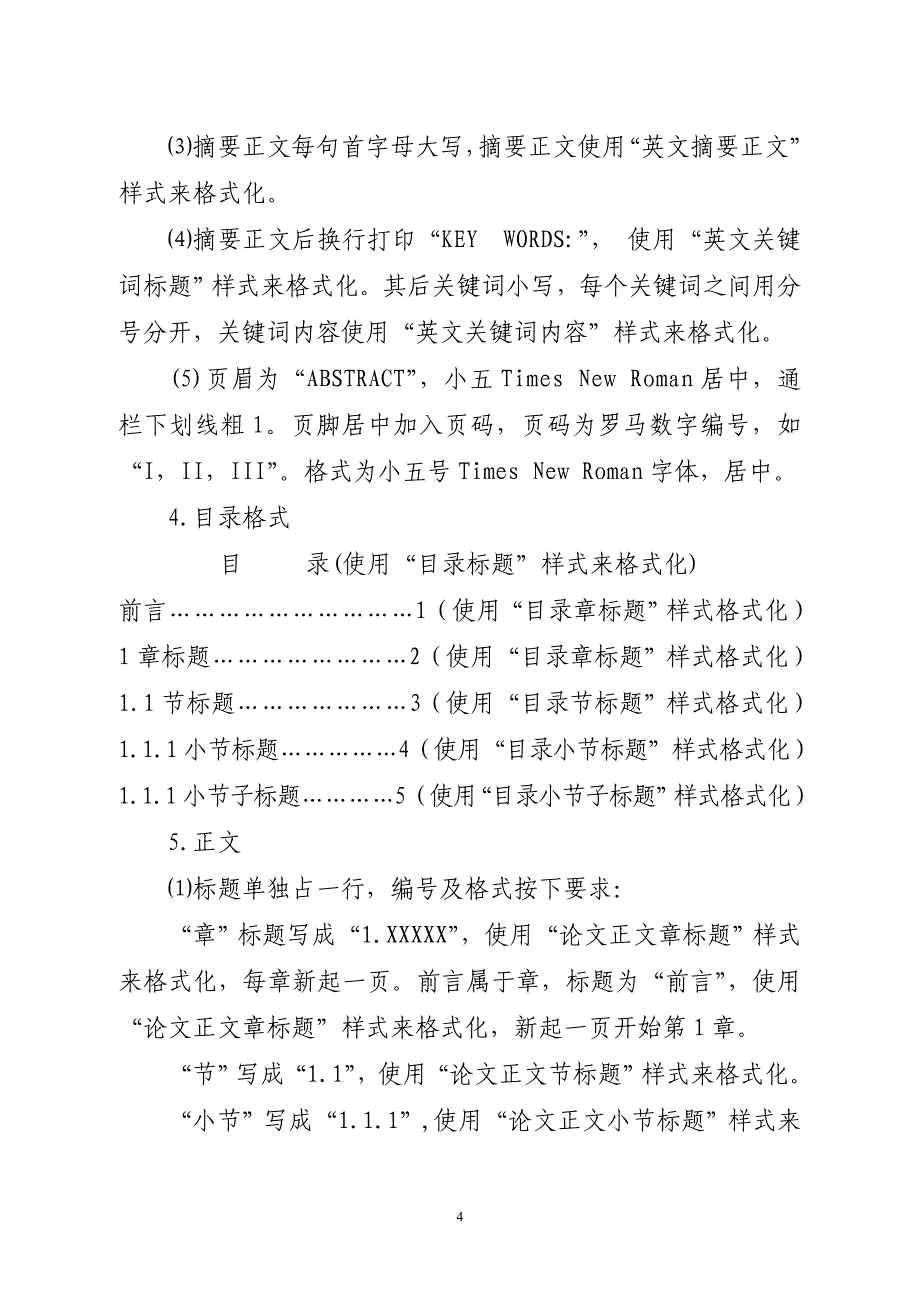 ⑶摘要正文每句首字母大写，摘要正文使用“英文摘要正文”
样式来格式化。
⑷摘要正文后换行打印“KEY WORDS:”， 使用“英文关键
词标题”样式来格式化。其后关键词小写，每个关键词之间用分
号分开，关键词内容使用“英文关键词内容”样式来格式化。
⑸页眉为“ABSTRACT”，小五Times New Roman居中，通
栏下划线粗1。页脚居中加入页码，页码为罗马数字编号，如
“I，II，III”。格式为小五号Times New Roman字体，居中。
4.目录格式
目 录(使用“目录标题”样式来格式化)
前言…………………………1（使用“目录章标题”样式格式化）
1章标题……………………2（使用“目录章标题”样式格式化）
1.1节标题…………………3（使用“目录节标题”样式格式化）
1.1.1小节标题……………4（使用“目录小节标题”样式格式化）
1.1.1小节子标题…………5（使用“目录小节子标题”样式格式化）
5.正文
⑴标题单独占一行，编号及格式按下要求：
“章”标题写成“1.XXXXX”，使用“论文正文章标题”样式
来格式化，每章新起一页。前言属于章，标题为“前言”，使用
“论文正文章标题”样式来格式化，新起一页开始第1章。
“节”写成“1.1”，使用“论文正文节标题”样式来格式化。
“小节”写成“1.1.1”,使用“论文正文小节标题”样式来
4